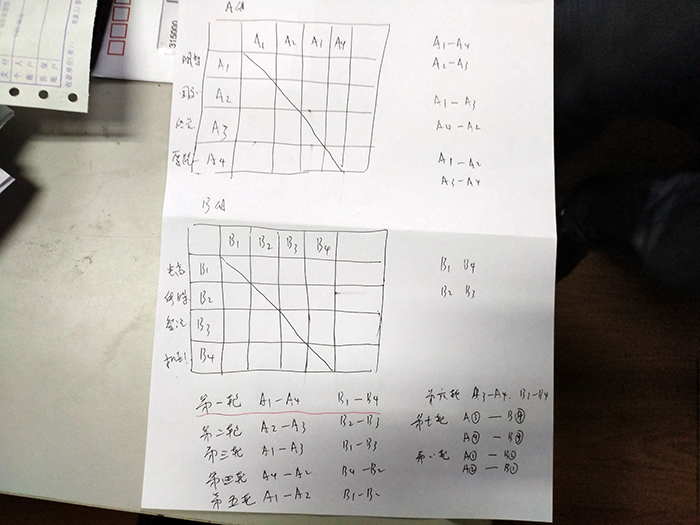 A组
A1 A2 A3 A4
A1
A2
A3
A4
A1-A4
A2-A3
A1-A3
A4-A2
A1-A2
A3-A4
B组
B1 B2 B3 B4
B1
B2
B3
B4
B1 B4
B2 B3
第一轮 A1-A4 B1-B4
第二轮 A2-A3 B2-B3
第三轮 A1-A3 B1-B3
第四轮 A4-A2 B4-B2
第五轮 A1-A2 B1-B2
第六轮 A3-A4. B3-B4
第七轮 A③-B④
第八轮 A①-B②
A②-B①
315000
个人账户
医保账户